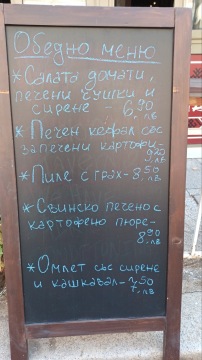 Обедно меню
*Салата домати,
печени чушки и
сирене - 6,90 лв
*Печен кефал със
запечени картофи-
9,20 лв
*Пиле с грах-8,50 лв
*Свинско печено с
картофено пюре-
8,90 лв
*Омлет със сирене
и кашкавал-7,50 лв